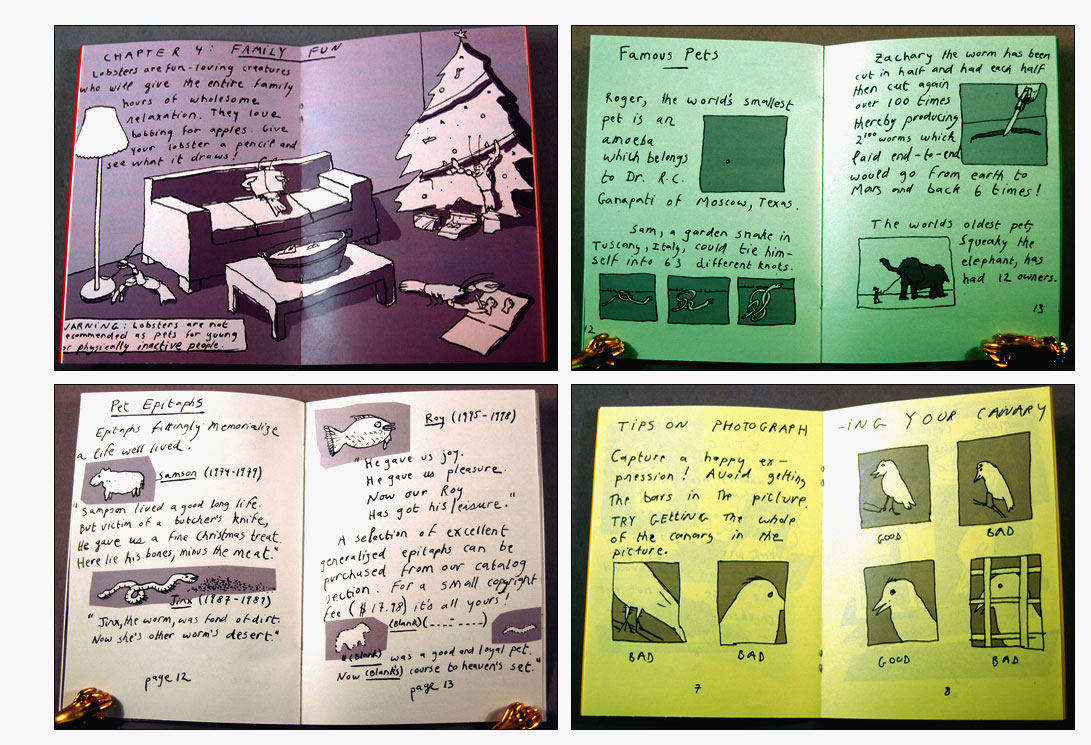 CHAPTER 4: FAMILY FUN
Lobsters are fun-loving creatures
who will give the entire family
hours of wholesome
relaxation. They love
bobbing for apples. Give
your lobster a pencil and
see what it draws!
WARNING: Lobsters are not
recommended as pets for young
or physically inactive people.
Famous Pets
Roger, the world's smallest
pet is an
amoeba
which belongs
to Dr. R.C.
Ganapati of Moscow, Texas.
Sam, a garden snake in
Tuscany, Italy, could tie him-
self into 63 different knots.
12
Zachary the worm has been
cut in half and had each half
then cut again
over 100 times
thereby producing
2100 worms which
laid end-to-end
would go from earth to
Mars and back 6 times!
The worlds oldest pet,
Squeaky the
elephant, has
had 12 owners.
13
Pet Epitaphs
Epitaphs fittingly memorialize
a life well lived.
Samson (1974-1979)
"Sampson lived a good long life.
But victim of a butcher's knife,
He gave us a fine Christmas treat.
Here lie his bones, minus the meat."
Jinx (1987-1989)
"Jinx, the worm, was fond of dirt.
Now she's other worm's desert."
page 12
Roy (1975-1978)
"He gave us joy.
He gave us pleasure.
Now our Roy
Has got his leisure."
A selection of excellent
generalized epitaphs can be
purchased from our catalog
section. For a small copyright
fee ($17.98) it's all yours!
(Blank) (----)
"(Blank) was a good and loyal pet.
Now (Blank's) course to heaven's set."
page 13
TIPS ON PHOTOGRAPH
Capture a happy ex-
pression! Avoid getting
the bars in the picture.
TRY GETTING the whole
of the canary in the
picture.
BAD
BAD
7
-ING YOUR CANARY
GOOD
BAD
GOOD
BAD
8